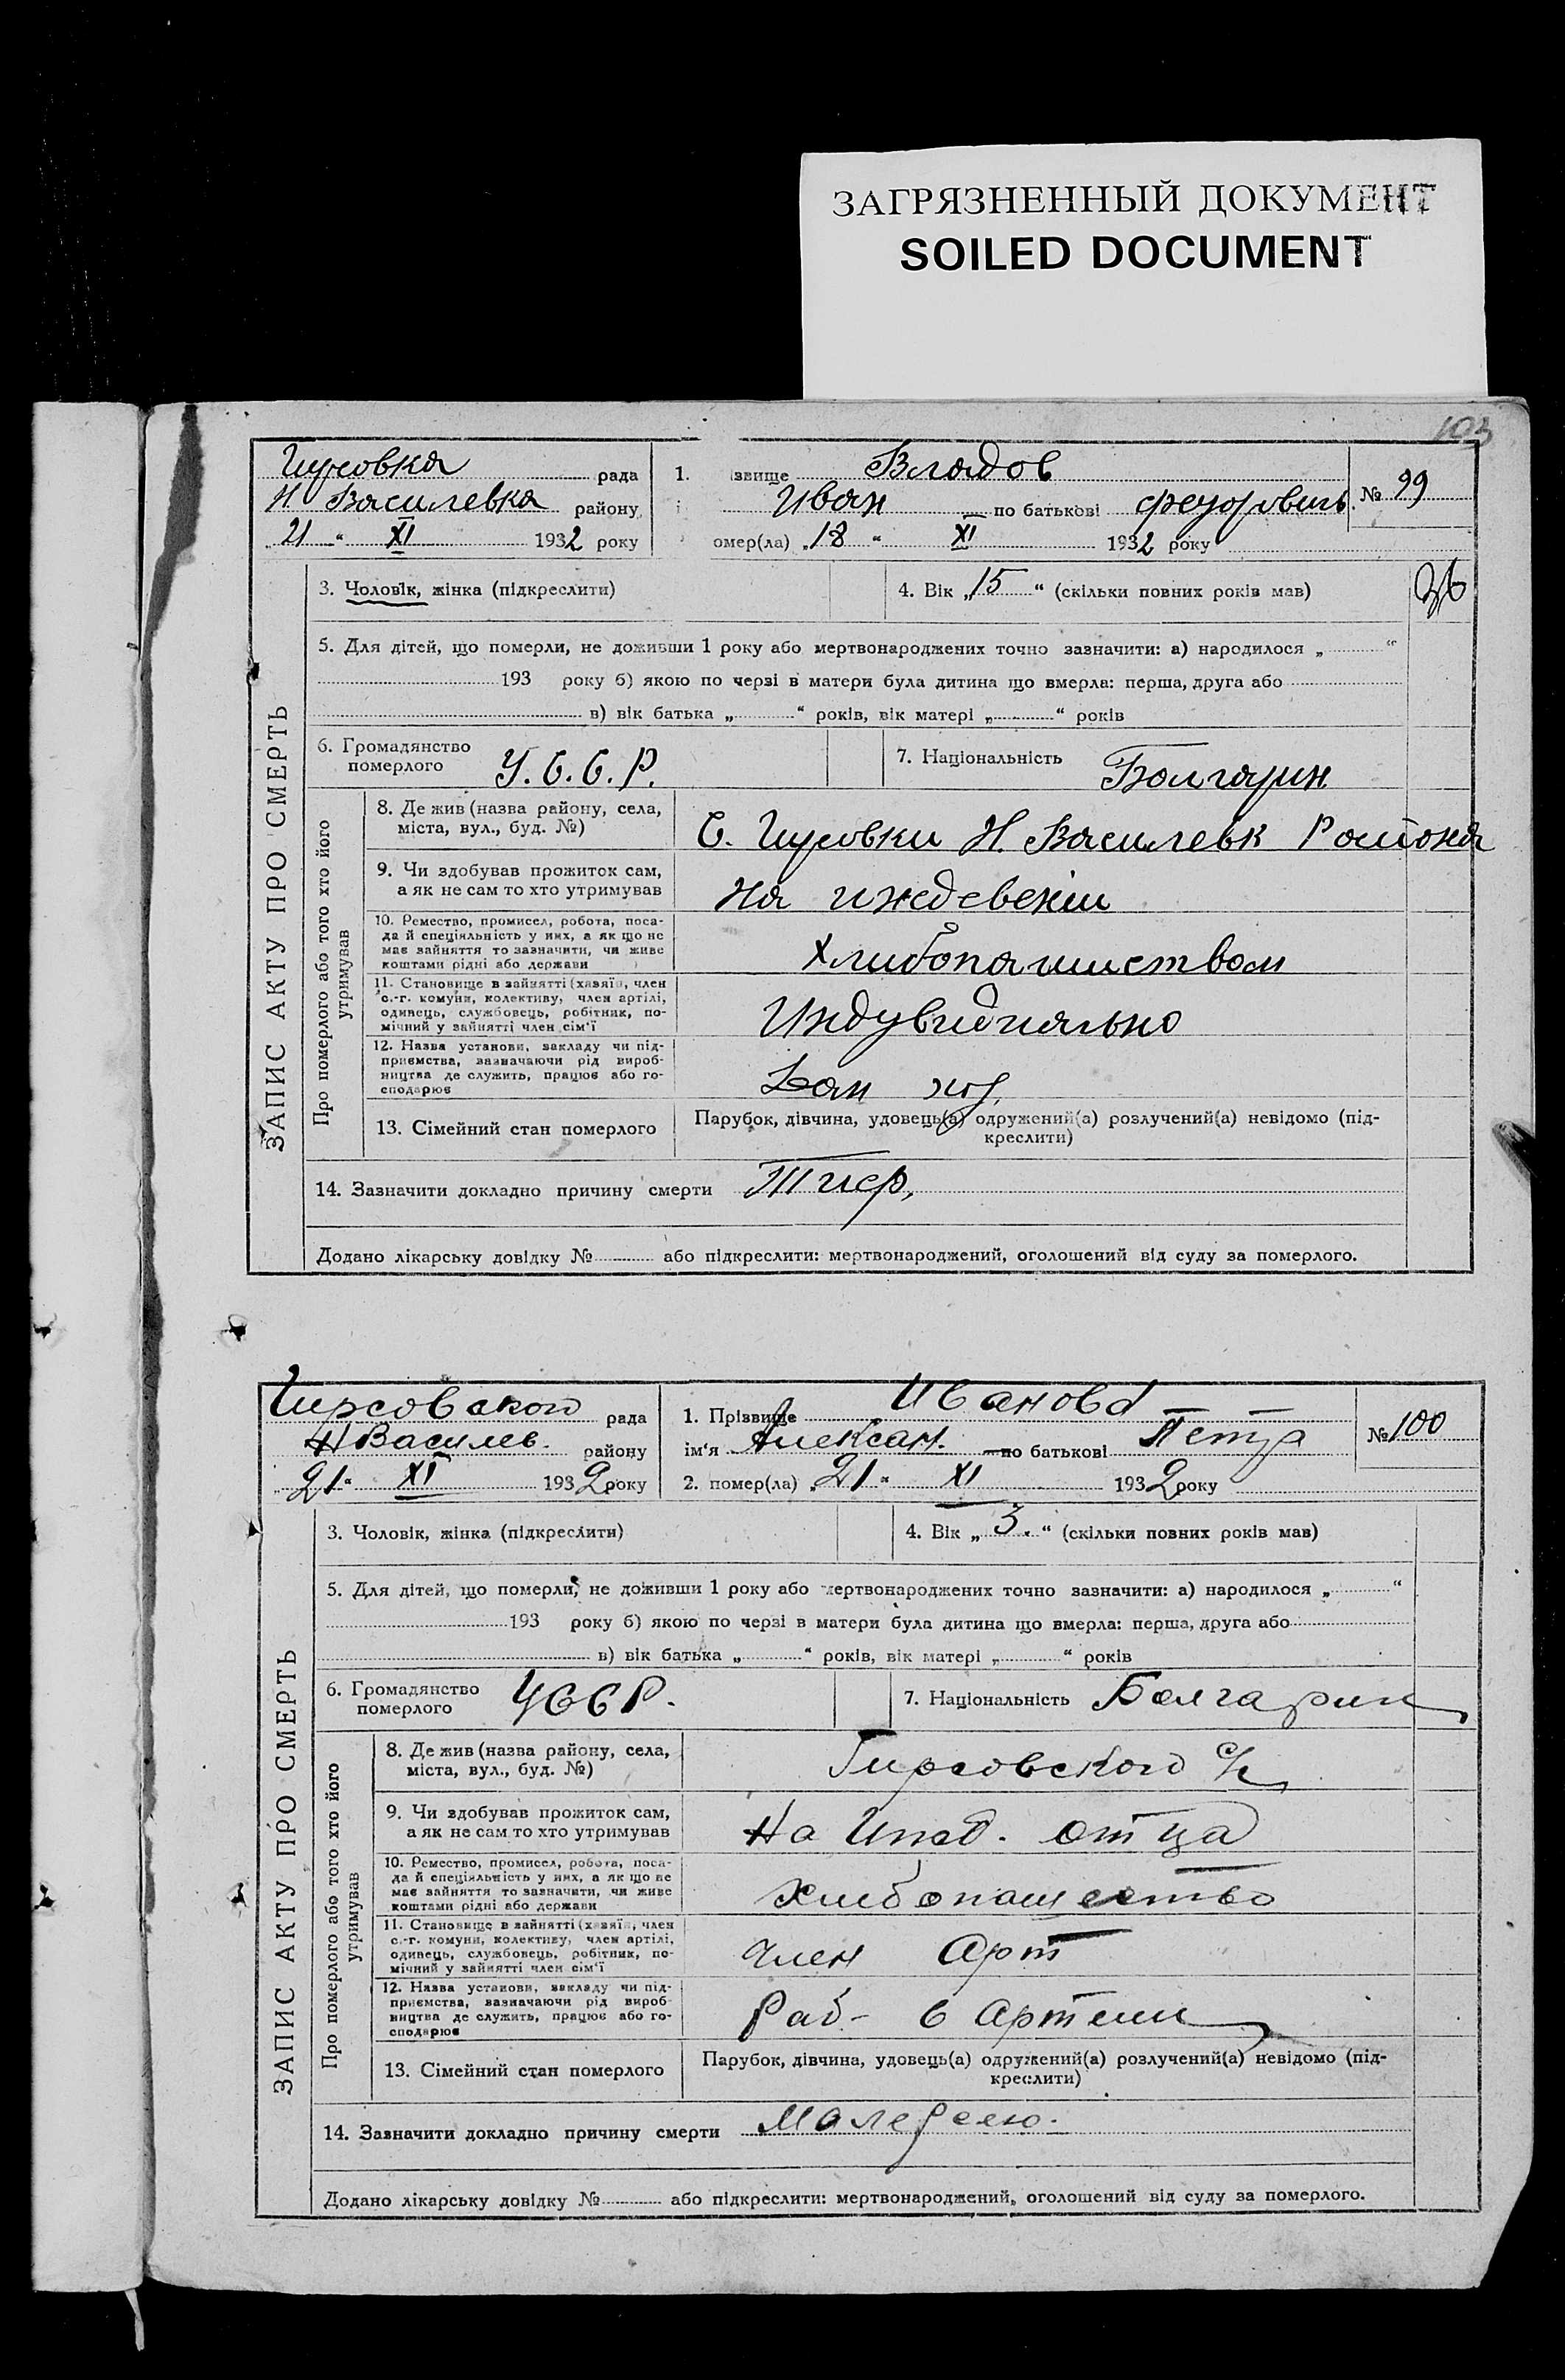 ЗАГРЯЗНЕННЫЙ ДОКУМЕНТ
SOILED DOCUMENT
103
Гирсовка рада
Н Василевка району
„21“ XI 1932 року
1. ізвище Владов
Иван по батькові Федорович
№ 99
омер(ла) „18“ XI 1932 року
3. Чоловік, жінка (підкреслити)
4. Вік „15“ (скільки повних років мав)
5. Для дітей, що померли, не доживши 1 року або мертвонароджених точно зазначити: а) народилося „ “
193 року б) якою по черзі в матери була дитина що вмерла: перша, друга або
в) вік батька „ “ років, вік матері „ “ років
6. Громадянство
померлого У.С.С.Р.
7. Національність Болгарин
ЗАПИС АКТУ ПРО СМЕРТЬ
Про померлого або того хто його
утримував
8. Де жив (назва району, села,
міста, вул., буд. №)
С. Гирсовки Н. Василевк Района
9. Чи здобував прожиток сам,
а як не сам то хто утримував
На иждевении
10. Ремество, промисел, робота, поса-
да й спеціяльність у них, а як що не
має зайняття то зазначити, чи живе
коштами рідні або держави
Хлибопашиством
11. Становище в зайнятті (хазяїн, член
с.-г. комуни, колективу, член артілі,
одинець, службовець, робітник, по-
мічний у зайнятті член сім'ї
Индувидиально
12. Назва установи, закладу чи під-
приємства, зазначаючи рід вироб-
ництва де служить, працює або го-
сподарює
13. Сімейний стан померлого
Парубок, дівчина, удовець(а) одружений(а) розлучений(а) невідомо (під-
креслити)
14. Зазначити докладно причину смерти Тиф,
Додано лікарську довідку № або підкреслити: мертвонароджений, оголошений від суду за померлого.
Гирсовской рада
Н Василев. району
21“ XI 1932 року
1. Прізвище Иванова
ім'я Алексан. по батькові Петра
№ 100
2. помер(ла) „21“ XI 1932 року
3. Чоловік, жінка (підкреслити)
4. Вік „3.“ (скільки повних років мав)
5. Для дітей, що померли, не доживши 1 року або мертвонароджених точно зазначити: а) народилося „ “
193 року б) якою по черзі в матери була дитина що вмерла: перша, друга або
в) вік батька „ “ років, вік матері „ “ років
6. Громадянство
померлого УССР.
7. Національність Болгарин
ЗАПИС АКТУ ПРО СМЕРТЬ
Про померлого або того хто його
утримував
8. Де жив (назва району, села,
міста, вул., буд. №)
Гирсовского с/с
9. Чи здобував прожиток сам,
а як не сам то хто утримував
На Ижд. отца
10. Ремество, промисел, робота, поса-
да й спеціяльність у них, а як що не
має зайняття то зазначити, чи живе
коштами рідні або держави
Хлибопашество
11. Становище в зайнятті (хазяїн, член
с.-г. комуни, колективу, член артілі,
одинець, службовець, робітник, по-
мічний у зайнятті член сім'ї
член Арт
12. Назва установи, закладу чи під-
приємства, зазначаючи рід вироб-
ництва де служить, працює або го-
сподарює
Раб- в Артели
13. Сімейний стан померлого
Парубок, дівчина, удовець(а) одружений(а) розлучений(а) невідомо (під-
креслити)
14. Зазначити докладно причину смерти
Додано лікарську довідку № або підкреслити: мертвонароджений, оголошений від суду за померлого.